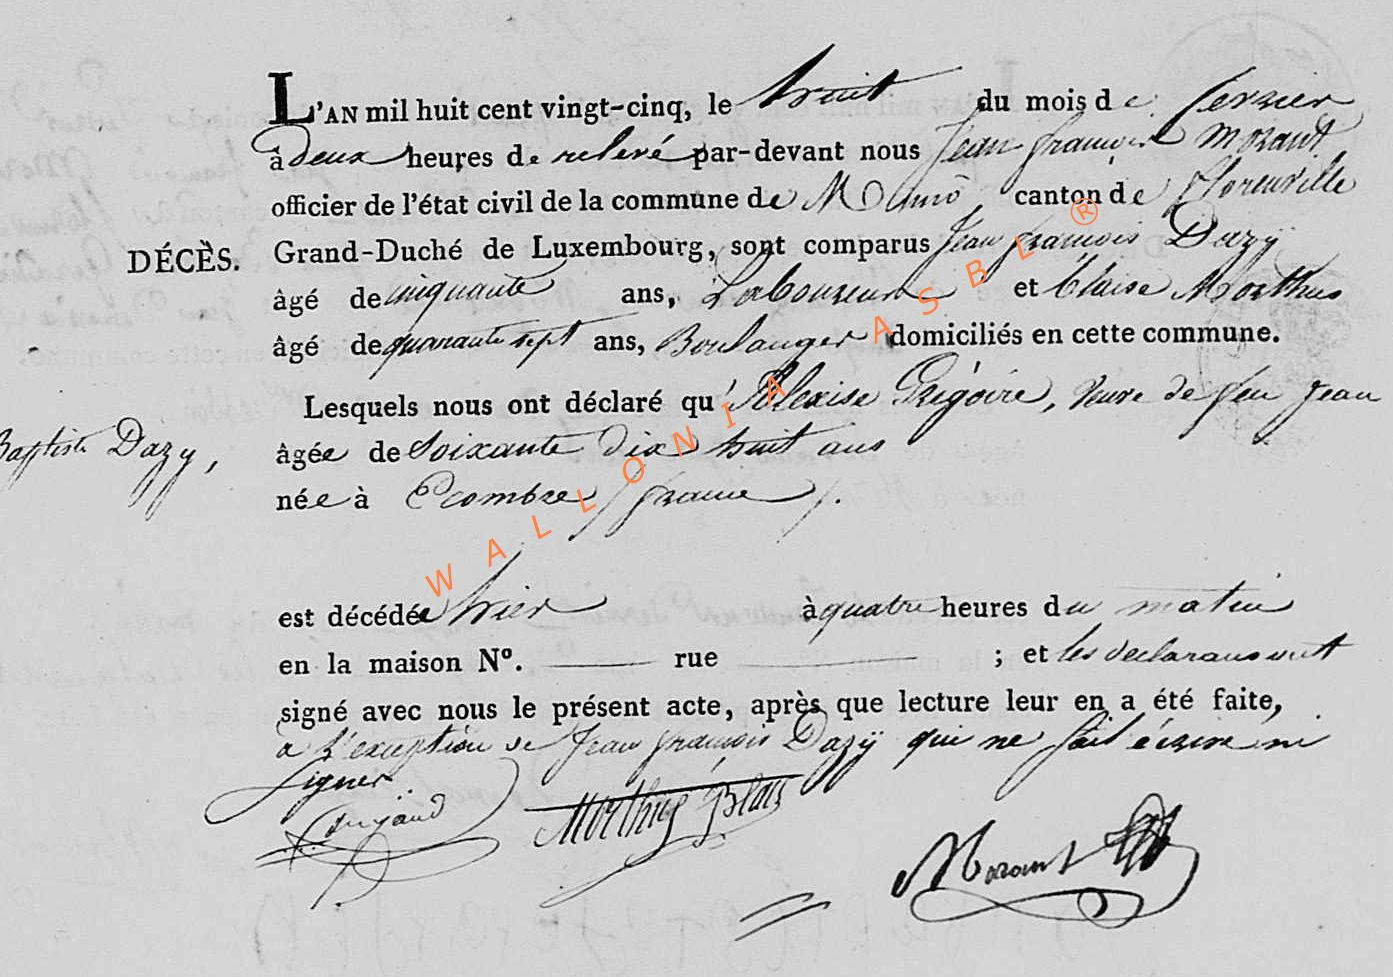 L'AN mil huit cent vingt-cinq, le huit du mois de fevrier
à deux heures de relevé par-devant nous Jean françois Morant
officier de l'état civil de la commune de Muno canton de florenville
DÉCÈS. Grand-Duché de Luxembourg, sont comparus Jean françois Dazÿ
âgé de cinquante ans, Laboureur et Blaise Morthus
âgé de quarante sept ans, Boulanger domiciliés en cette commune.
Lesquels nous ont déclaré qu'Alexise Grégoire, veuve de feu Jean
Baptiste Dazy, âgée de Soixante dix huit ans
née à Ecombre (france).
est décédée hier à quatre heures du matin
en la maison Nº. rue ; et les declarans ont
signé avec nous le présent acte, après que lecture leur en a été faite,
a l'exception de Jean françois Dazÿ qui ne sait écrire ni
signer.
Morthus Blais
Morant
WALLONIA ASBL ®